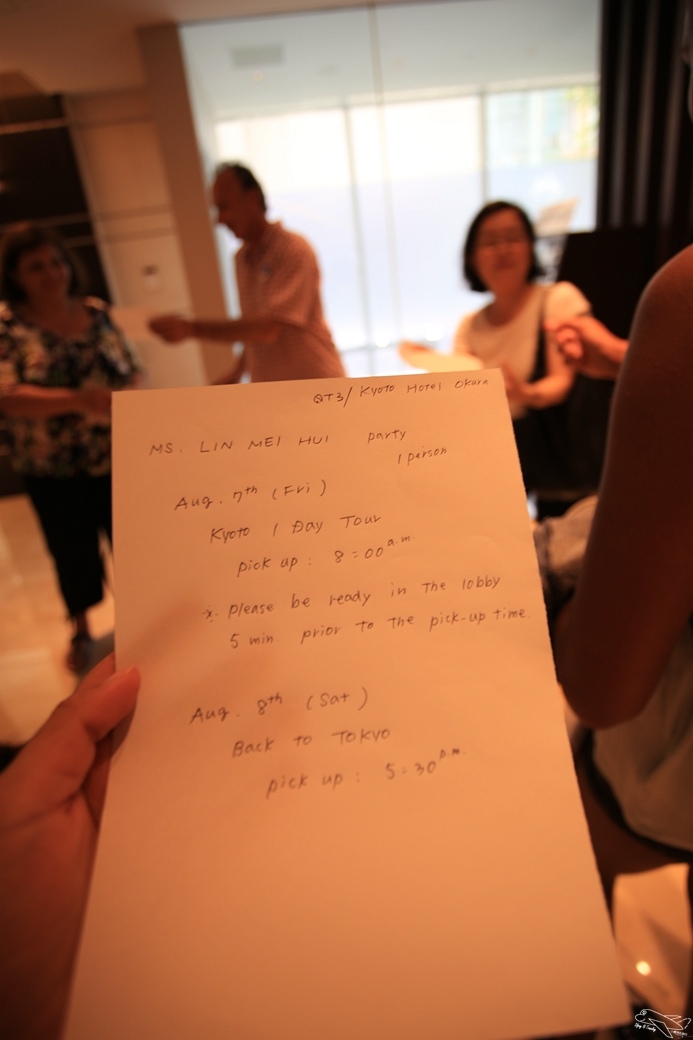 QT3/ Kyoto Hotel Okura
MS. LIN MEI HUI party
1 person
Aug. 7th (Fri)
Kyoto 1 Day Tour
pick up : 8:00 a.m.
※. Please be ready in the lobby
5 min. prior to the pick-up time.
Aug. 8th (Sat)
Back to Tokyo
pick up : 5:30 p.m.